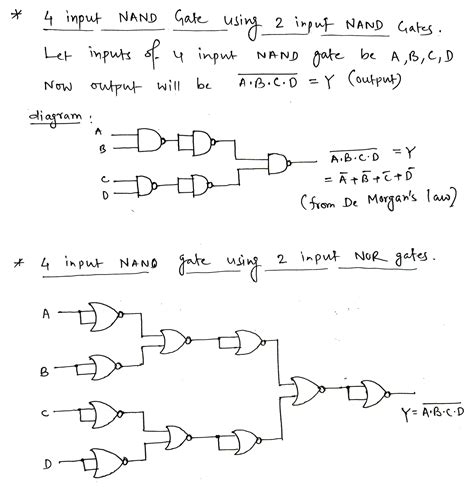 * 4 input NAND Gate using 2 input NAND Gates.
Let inputs of 4 input NAND gate be A, B, C, D
Now output will be \overline{A·B·C·D} = Y (output)
diagram:
A
B
C
D
\overline{A·B·C·D} = Y
= A̅ + B̅ + C̅ + D̅
(from De Morgan's law)
* 4 input NAND gate using 2 input NOR gates.
A
B
C
D
Y = \overline{A·B·C·D}